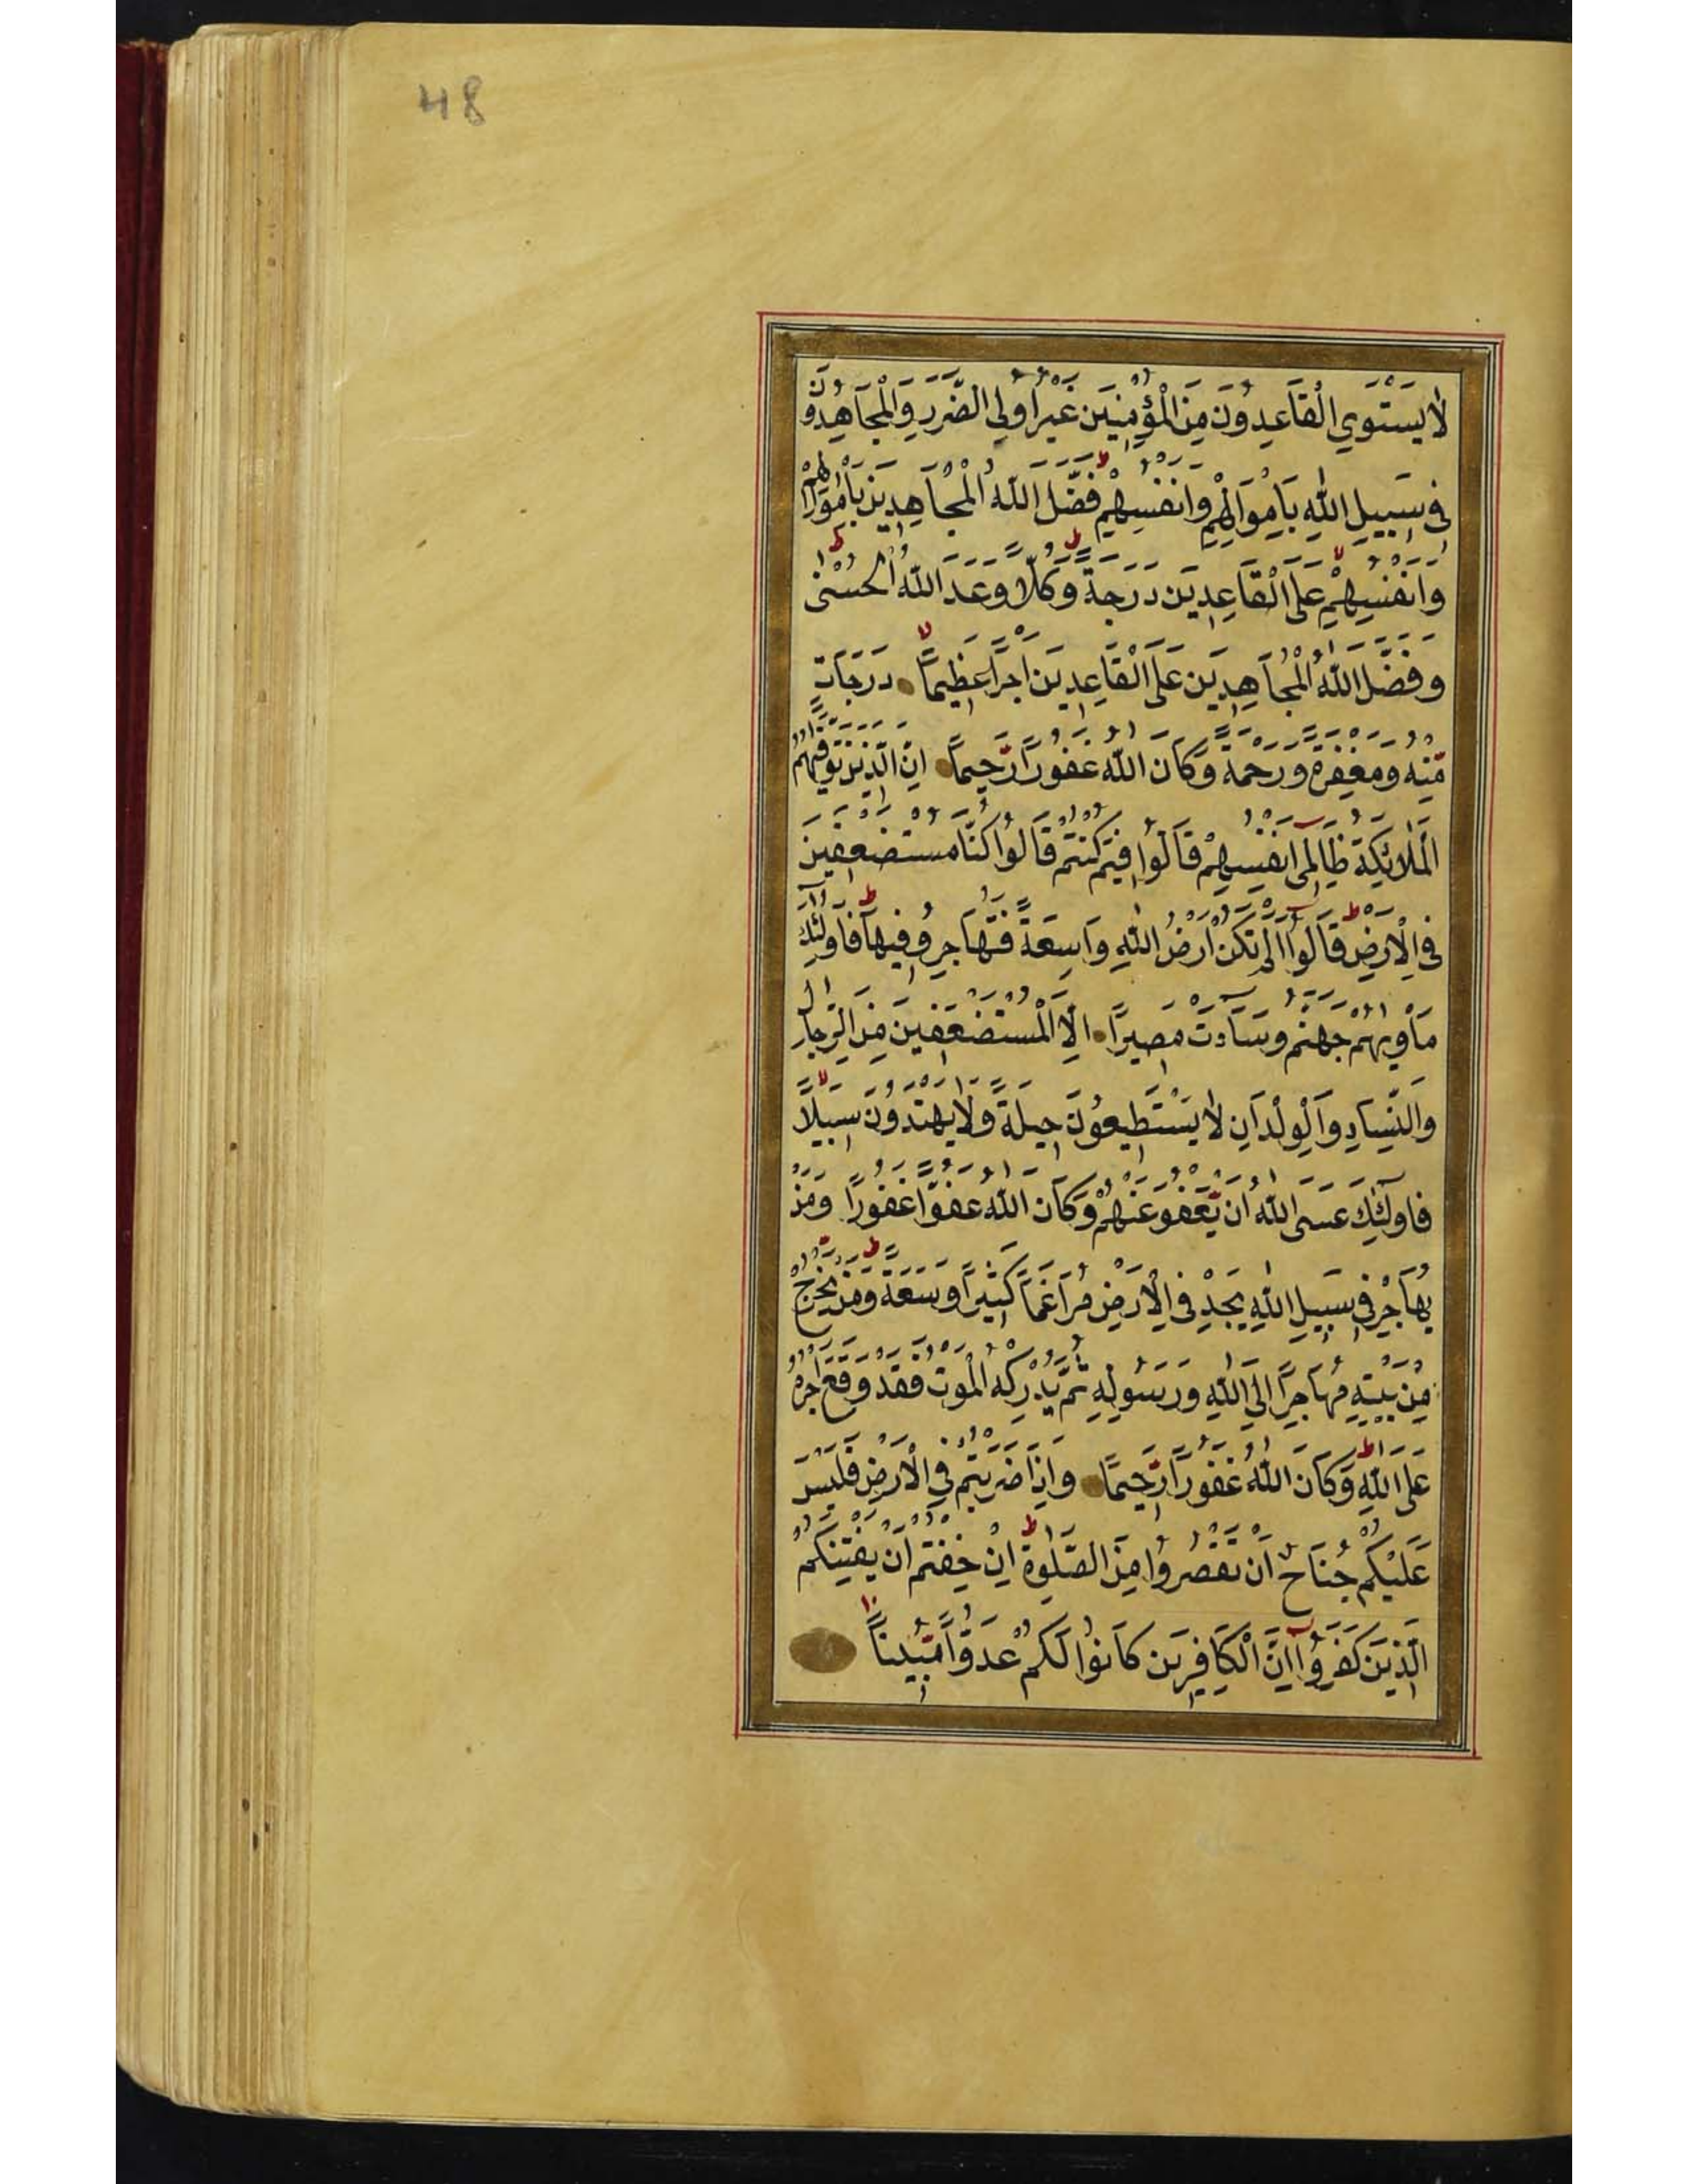 48
لَا يَسْتَوِي الْقَاعِدُونَ مِنَ الْمُؤْمِنِينَ غَيْرُ اُولِي الضَّرَرِ وَالْمُجَاهِدُونَ
فِي سَبِيلِ اللّٰهِ بِاَمْوَالِهِمْ وَاَنْفُسِهِمْ ط فَضَّلَ اللّٰهُ الْمُجَاهِدِينَ بِاَمْوَالِهِمْ
وَاَنْفُسِهِمْ عَلَى الْقَاعِدِينَ دَرَجَةً ط وَكُلًّا وَعَدَ اللّٰهُ الْحُسْنٰى ط
وَفَضَّلَ اللّٰهُ الْمُجَاهِدِينَ عَلَى الْقَاعِدِينَ اَجْرًا عَظِيمًا لا دَرَجَاتٍ
مِّنْهُ وَمَغْفِرَةً وَرَحْمَةً وَّكَانَ اللّٰهُ غَفُورًا رَّحِيمًا اِنَّ الَّذِينَ تَوَفّٰيهُمُ
الْمَلٰائِكَةُ ظَالِمِي اَنْفُسِهِمْ قَالُوا فِيمَ كُنْتُمْ قَالُوا كُنَّا مُسْتَضْعَفِينَ
فِي الْاَرْضِ ط قَالُوا اَلَمْ تَكُنْ اَرْضُ اللّٰهِ وَاسِعَةً فَتُهَاجِرُوا فِيهَا ط فَاُولٰئِكَ
مَاْوٰيهُمْ جَهَنَّمُ وَسَاءَتْ مَصِيرًا اِلَّا الْمُسْتَضْعَفِينَ مِنَ الرِّجَالِ
وَالنِّسَاءِ وَالْوِلْدَانِ لَا يَسْتَطِيعُونَ حِيلَةً وَّلَا يَهْتَدُونَ سَبِيلًا لا
فَاُولٰئِكَ عَسَى اللّٰهُ اَنْ يَّعْفُوَ عَنْهُمْ وَكَانَ اللّٰهُ عَفُوًّا غَفُورًا وَمَنْ
يُهَاجِرْ فِي سَبِيلِ اللّٰهِ يَجِدْ فِي الْاَرْضِ مُرَاغَمًا كَثِيرًا وَسَعَةً ط وَمَنْ يَّخْرُجْ
مِنْ بَيْتِهِ مُهَاجِرًا اِلَى اللّٰهِ وَرَسُولِهِ ثُمَّ يُدْرِكْهُ الْمَوْتُ فَقَدْ وَقَعَ اَجْرُهُ
عَلَى اللّٰهِ ط وَكَانَ اللّٰهُ غَفُورًا رَّحِيمًا وَاِذَا ضَرَبْتُمْ فِي الْاَرْضِ فَلَيْسَ
عَلَيْكُمْ جُنَاحٌ اَنْ تَقْصُرُوا مِنَ الصَّلٰوةِ ط اِنْ خِفْتُمْ اَنْ يَفْتِنَكُمُ
الَّذِينَ كَفَرُوا اِنَّ الْكَافِرِينَ كَانُوا لَكُمْ عَدُوًّا مُّبِينًا ١٠